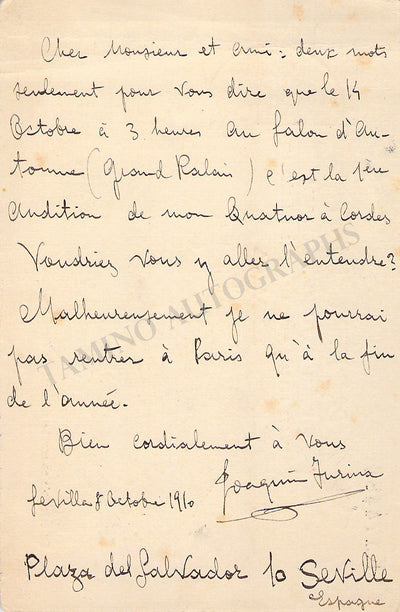 Cher Monsieur et ami: deux mots
seulement pour vous dire que le 14
Octobre à 3 heures au Salon d'Au-
tomne (Grand Palais) c'est la 1ère
audition de mon Quatuor à Cordes
Voudriez vous y aller l'entendre?
Malheureusement je ne pourrai
pas rentrer à Paris qu'à la fin
de l'année.
Bien cordialement à vous
Joaquin Turina
Sevilla 8 Octobre 1910
Plaza del Salvador 10 Seville
Espagne
TAMINO AUTOGRAPHS